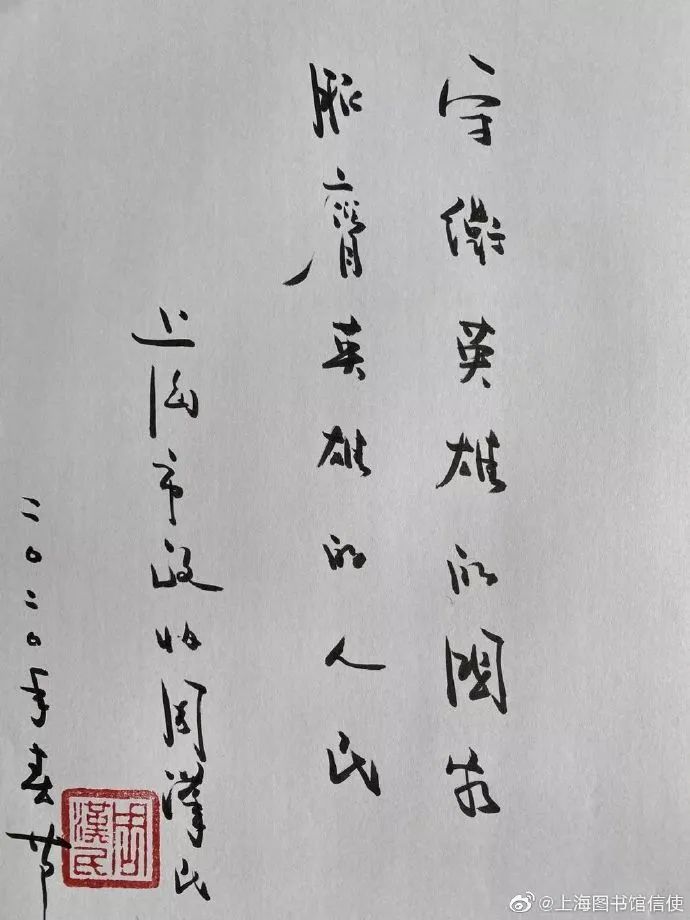 守衛英雄的國家
服膺英雄的人民
上海市政协周漢民
二〇二〇年春节
周漢民
@上海图书馆信使